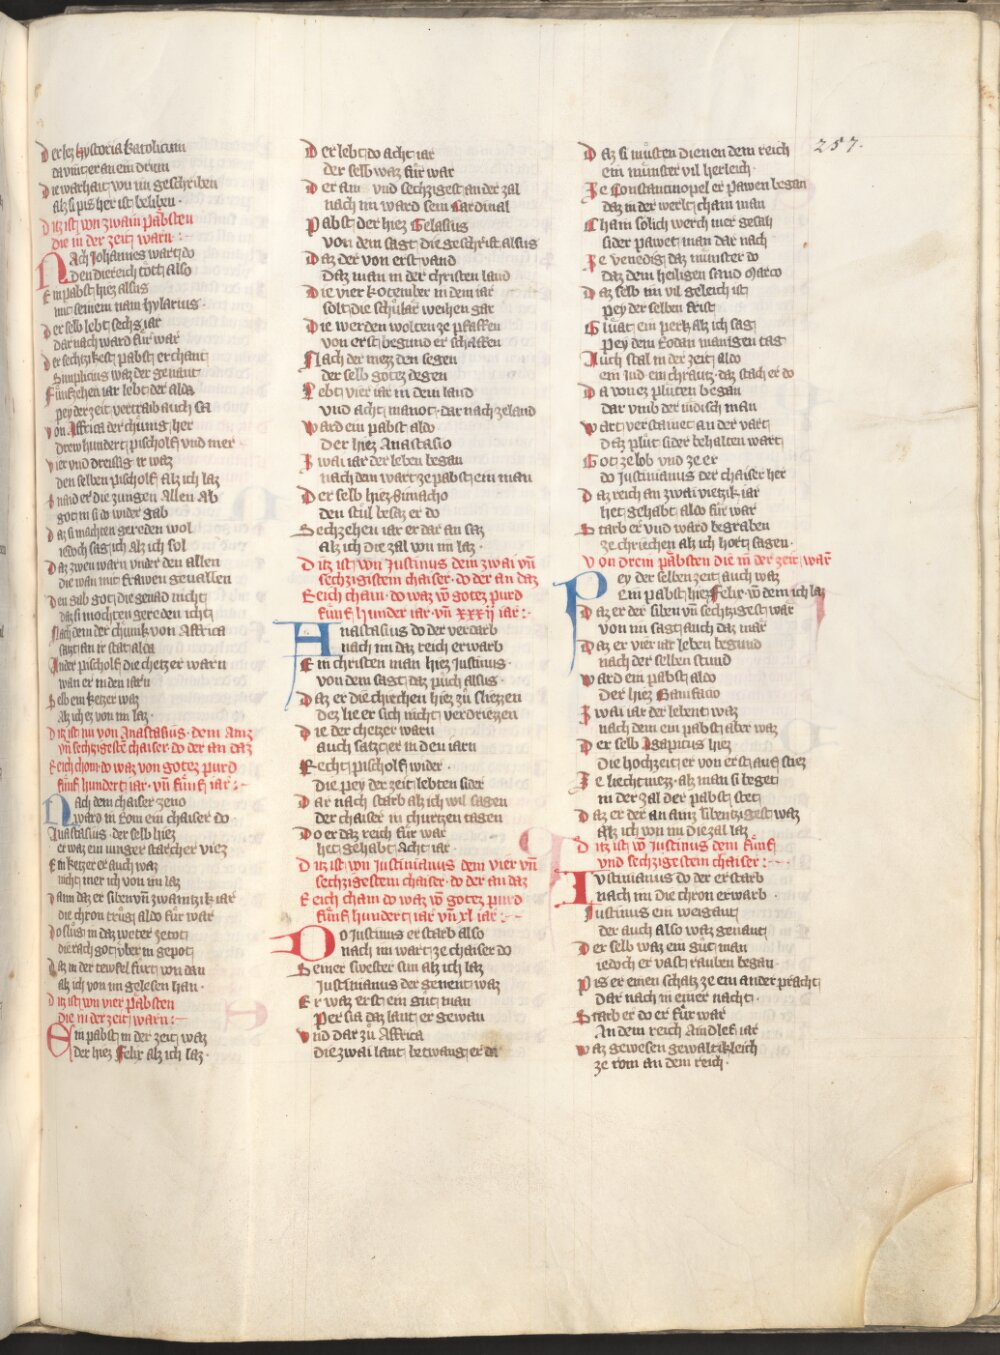 Der hez hystoria katolicum
da vint er an ein drum
Die warhait von im geschriben
als si pis her ist beliben ·
Ditz ist von zwain pabsten
die in der zeit warn :~
Nach Johannes wart do
den die reich toͤtt also
Ein pabst hiez alsus
mit seinem nam hylarius ·
Der selb lebt sechs iar
dar nach ward fuͤr war
Der sechzikest pabst erchant
Simplicius waz der genant
Fuͤnfzehen iar lebt der alda
pey der zeit vertraib auch sa
Von Affrica der chuͤnig her
drew hundert pischolf vnd mer ·
Vier vnd dreisig ir waz
den selben pischolf alz ich laz
Snaid er die zungen allen ab
got in si do wider gab
Daz si machten gereden wol
iedoch sag ich alz ich sol
Daz zwen warn vnder den allen
die wan mit frawen geuallen
Den gab got die genad nicht
daz si mochten gereden icht
Nach dem der chunk von Affrica
satzt an ir stat alda
Ander pischolf die chetzer warn
wan er in den iarn
Selb ein ketzer waz
Alz ich ez von im laz ·
Ditz ist nu von Anastasius · dem ainz
vn̄ sechzigestē chaiser · do der an daz
Reich chom · do waz von gotez purd
fuͤnf hundert iar · vn̄ fuͤnf iar :~
Nach dem chaiser zeno
ward in Rom ein chaiser do
Anastasius · der selb hiez
er waz ein iunger starcher viez
Ein ketzer er auch waz
nicht mer ich von im laz
Dann daz er siben vn̄ zwaintzik iar
die chron truͦg aldo fuͤr war
Do sluͦg in daz weter zetot
die rach got vber in gepot
Daz in der tewfel fuͤrt von dan
alz ich von im gelesen han ·
Ditz ist von vier pabsten
die in der zeit warn :~
Ein pabst in der zeit waz
der hiez Felix alz ich laz ·
Der lebt do acht iar
der selb waz fuͤr war
Der ain vnd sechzigest an der zal
nach im ward sein Cardinal
Pabst der hiez Gelasius
von dem sagt die geschrift alsus
Daz der von erst vand
Daz man in der christen land
Die vier kotember in dem iar
solt die schuͦlar weihen gar
Die werden wolten ze pfaffen
von erst begund er schaffen
Nach der mez den segen
der selb gotez degen
Lebt vier iar in dem land
vnd acht manot · dar nach zeland
Ward ein pabst aldo
Der hiez Anastasio
Zwai iar der leben began
nach dem wart ze pabst ein man
Der selb hiez Simacho
den stuͦl besaz er do
Sechzehen iar er dar an saz
Alz ich die zal von im laz ·
Ditz ist von Justinus dem zwai vn̄
sechzigistem chaiser · do der an daz
Reich cham · do waz vō gotez purd
fuͤnf hunder iar · vn̄ xxxij iar :·
Anastasius do der verdarb
nach im daz reich erwarb
Ein christen man hiez Justinus ·
von dem sagt daz puͦch alsus ·
Daz er die chirchen hiez zuͦ sliezzen
Dez lie er sich nicht verdriezzen
Die der chetzer warn
auch satzt er in den iarn
Recht pischolf wider ·
Die pey der zeit lebten sider
Dar nach starb alz ich wil sagen
der chaiser in churtzen tagen
Do er daz reich fuͤr war
het gehabt Acht iar ·
Ditz ist von Justinianus dem vier vn̄
sechzigestem chaiser · do der an daz
Reich cham do waz vō gotez purd
fuͤnf hundert iar vn̄ xl iar :·~
Do Justinus erstarb also
nach im wart ze chaiser do
Seiner swester sun alz ich laz
Justinianus der genent waz
Er waz erst ein guͦt man
Persia daz lant er gewan
Vnd dar zuͦ Affrica
die zwai lant betwang er da
Daz si muͤsten dienen dem reich
ein muͤnster vil herleich ·
Ze Constantinopel er pawen began
daz in der werlt chain man
Cham solich werch mer gesah
sider pawet man dar nach
Ze venedig daz muͤnster do
daz dem heiligen sand Marco
Daz selb im vil geleich ist
pey der selben frist
Gluͤat ein perk alz ich sag
Pey dem Rodan manigen tag
Auch stal in der zeit aldo
ein Jud ein chraͤutz · daz stach er do
Da von ez pluͤten began
dar vmb der iudisch man
Wart verstainet an der vart
Daz pluͦt sider behalten wart
Got ze lob vnd ze er
do Justinianus der chaiser her
Daz reich an zwai vietzik iar
het gehabt aldo fuͤr war
Starb er vnd ward begraben
ze chriechen alz ich hort sagen ·
Von drein pabsten die in der zeit warn̄
Pey der selben zeit auch waz
Ein pabst hiez Felix · vō dem ich laz
Daz er der siben vn̄ sechtzigest waͤr
von im sagt auch daz maͤr
Daz er vier iar leben begund
nach der selben stund
Ward ein pabst aldo
Der hiez Banifacio
Zwai iar der lebent waz
nach dem ein pabst aber waz
Der selb Agapicus hiez
Die hochzeit er von erst auf stiez
Ze liechtmez · alz man si beget
in der zal der pabst stet
Daz er der an ainz sibentzigest waz
Alz ich von im die zal laz
Ditz ist vō Justinus dem fuͤnf
vnd sechzigestem chaiser :·~
Justinianus do der erstarb
nach im die chron erwarb
Justinus ein weigant
der auch also waz genant
Der selb waz ein guͦt man
iedoch er vast rauben began ·
Pis er einen schatz ze ein ander pracht
Dar nach in einer nacht ·
Starb er do er fuͤr war
An dem reich Aindlef iar
Waz gewesen gewaltikleich
ze rom an dem reich ·
257.